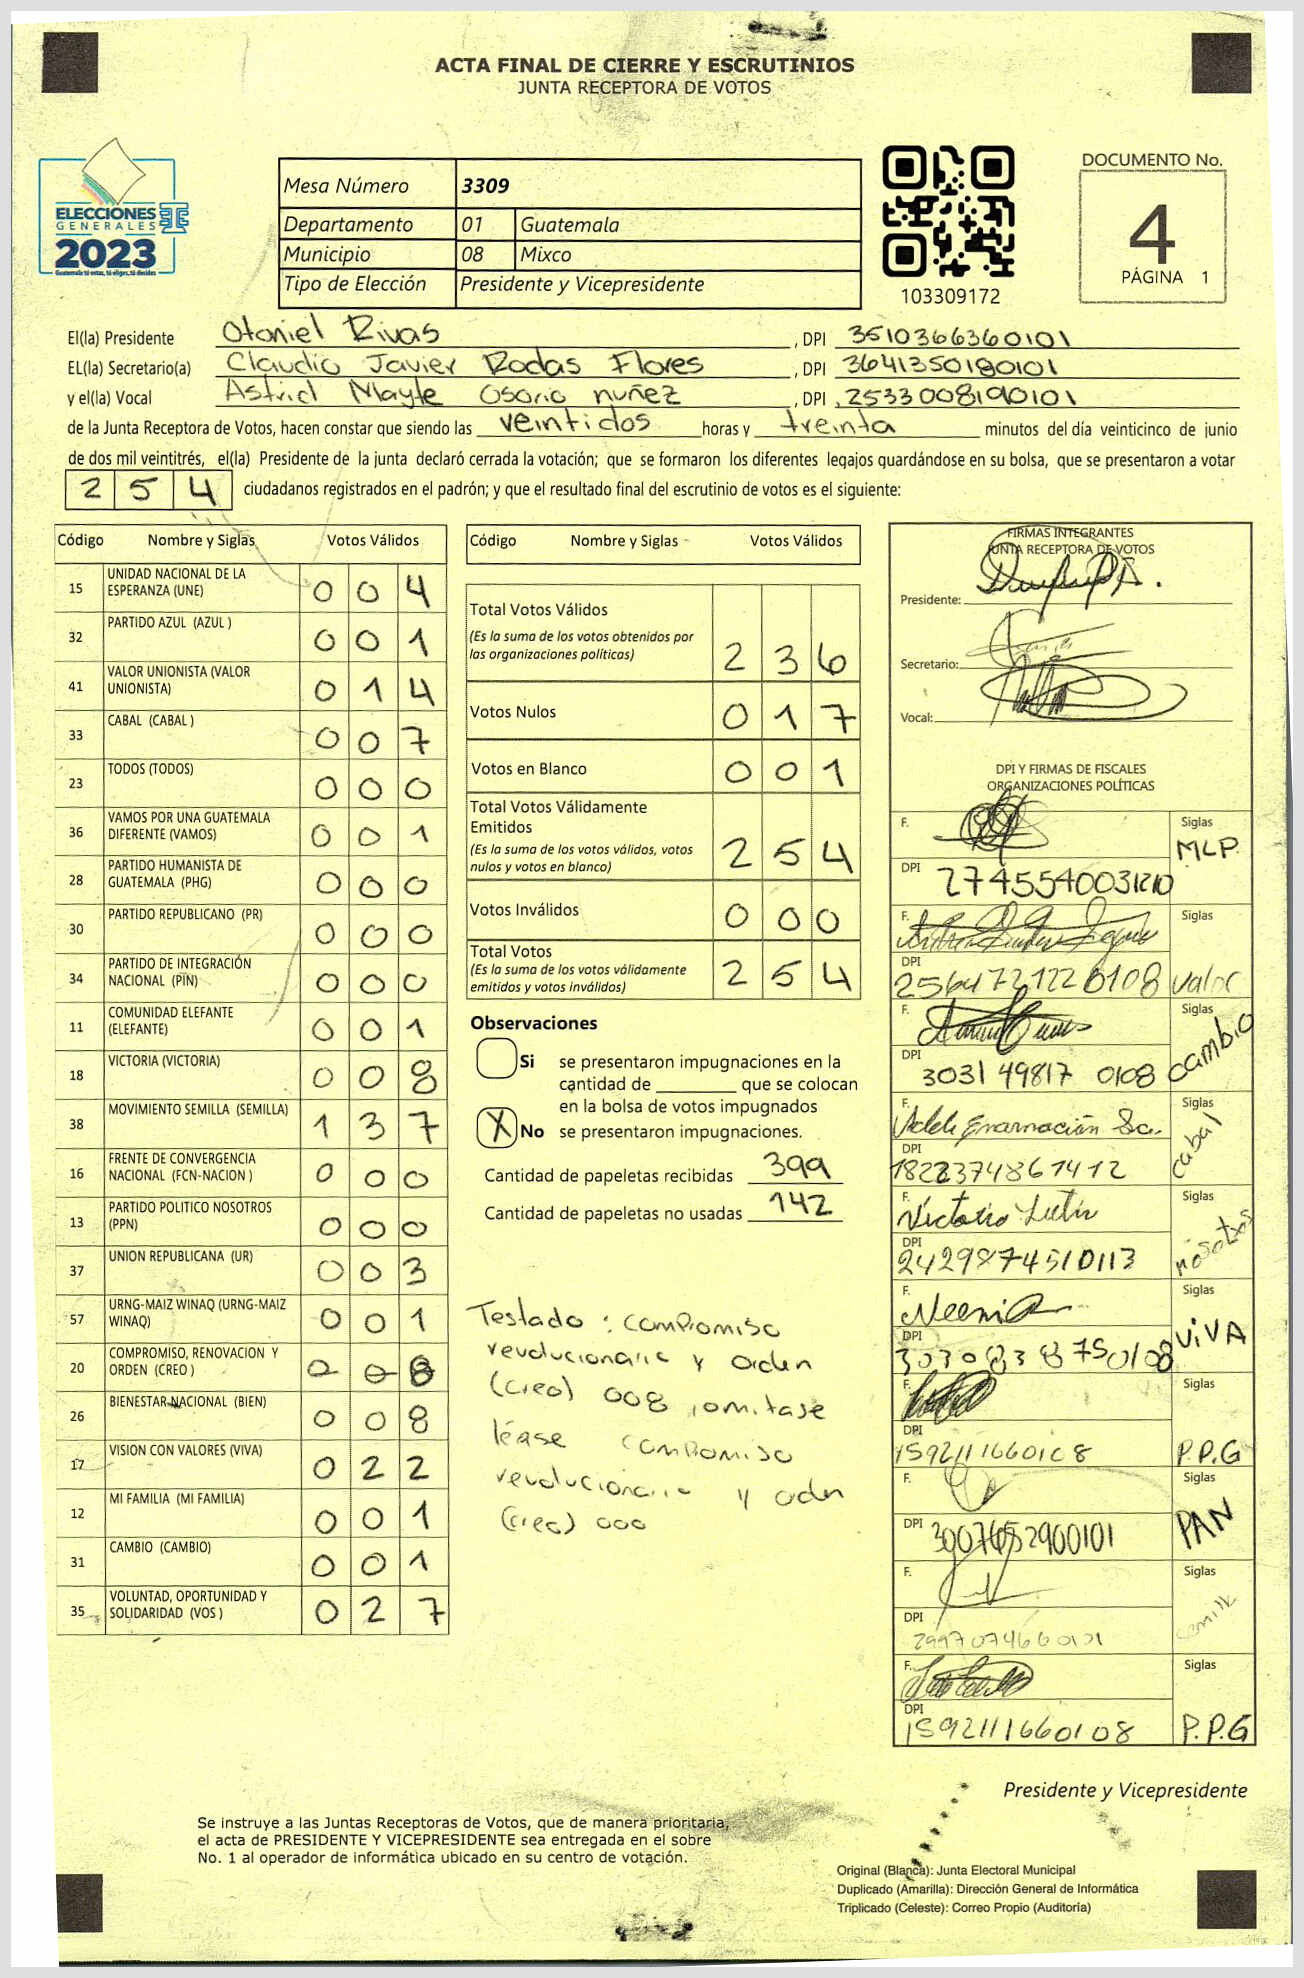 ACTA FINAL DE CIERRE Y ESCRUTINIOS
JUNTA RECEPTORA DE VOTOS
ELECCIONES
GENERALES
2023
Guatemala tú votas, tú eliges, tú decides
Mesa Número 3309
Departamento 01 Guatemala
Municipio 08 Mixco
Tipo de Elección Presidente y Vicepresidente
103309172
DOCUMENTO No.
4
PÁGINA 1
El(la) Presidente Otoniel Rivas , DPI 3510366360101
EL(la) Secretario(a) Claudio Javier Rodas Flores , DPI 3641350180101
y el(la) Vocal Astrid Mayte Osorio nuñez , DPI 2533008190101
de la Junta Receptora de Votos, hacen constar que siendo las veintidos horas y treinta minutos del día veinticinco de junio
de dos mil veintitrés, el(la) Presidente de la junta declaró cerrada la votación; que se formaron los diferentes legajos guardándose en su bolsa, que se presentaron a votar
2 5 4 ciudadanos registrados en el padrón; y que el resultado final del escrutinio de votos es el siguiente:
Código Nombre y Siglas Votos Válidos
15 UNIDAD NACIONAL DE LA ESPERANZA (UNE) 0 0 4
32 PARTIDO AZUL (AZUL ) 0 0 1
41 VALOR UNIONISTA (VALOR UNIONISTA) 0 1 4
33 CABAL (CABAL ) 0 0 7
23 TODOS (TODOS) 0 0 0
36 VAMOS POR UNA GUATEMALA DIFERENTE (VAMOS) 0 0 1
28 PARTIDO HUMANISTA DE GUATEMALA (PHG) 0 0 0
30 PARTIDO REPUBLICANO (PR) 0 0 0
34 PARTIDO DE INTEGRACIÓN NACIONAL (PIN) 0 0 0
11 COMUNIDAD ELEFANTE (ELEFANTE) 0 0 1
18 VICTORIA (VICTORIA) 0 0 8
38 MOVIMIENTO SEMILLA (SEMILLA) 1 3 7
16 FRENTE DE CONVERGENCIA NACIONAL (FCN-NACION ) 0 0 0
13 PARTIDO POLITICO NOSOTROS (PPN) 0 0 0
37 UNION REPUBLICANA (UR) 0 0 3
57 URNG-MAIZ WINAQ (URNG-MAIZ WINAQ) 0 0 1
20 COMPROMISO, RENOVACION Y ORDEN (CREO ) 0 0 8
26 BIENESTAR NACIONAL (BIEN) 0 0 8
17 VISION CON VALORES (VIVA) 0 2 2
12 MI FAMILIA (MI FAMILIA) 0 0 1
31 CAMBIO (CAMBIO) 0 0 1
35 VOLUNTAD, OPORTUNIDAD Y SOLIDARIDAD (VOS ) 0 2 7
Código Nombre y Siglas Votos Válidos
Total Votos Válidos
(Es la suma de los votos obtenidos por
las organizaciones políticas) 2 3 6
Votos Nulos 0 1 7
Votos en Blanco 0 0 1
Total Votos Válidamente
Emitidos
(Es la suma de los votos válidos, votos
nulos y votos en blanco) 2 5 4
Votos Inválidos 0 0 0
Total Votos
(Es la suma de los votos válidamente
emitidos y votos inválidos) 2 5 4
Observaciones
Si se presentaron impugnaciones en la
cantidad de ________ que se colocan
en la bolsa de votos impugnados
X No se presentaron impugnaciones.
Cantidad de papeletas recibidas 399
Cantidad de papeletas no usadas 142
Testado : compromiso
revolucionario y orden
(creo) 008 , omitase
léase compromiso
revolucionario y orden
(creo) 000
FIRMAS INTEGRANTES
JUNTA RECEPTORA DE VOTOS
Presidente:
Secretario:
Vocal:
DPI Y FIRMAS DE FISCALES
ORGANIZACIONES POLÍTICAS
F. Siglas MLP
DPI
F. Siglas valor
DPI 2564721220108
F. Siglas cambio
DPI 3031 49817 0108
F. Siglas cabal
DPI 1822374861412
F. Siglas nosotros
DPI 2429874510113
F. Siglas VIVA
DPI
F. Siglas P.P.G
DPI 1592111660108
F. Siglas PAN
DPI
F. Siglas semilla
DPI
F. Siglas P.P.G
DPI 1592111660108
Presidente y Vicepresidente
Se instruye a las Juntas Receptoras de Votos, que de manera prioritaria,
el acta de PRESIDENTE Y VICEPRESIDENTE sea entregada en el sobre
No. 1 al operador de informática ubicado en su centro de votación.
Original (Blanca): Junta Electoral Municipal
Duplicado (Amarilla): Dirección General de Informática
Triplicado (Celeste): Correo Propio (Auditoría)